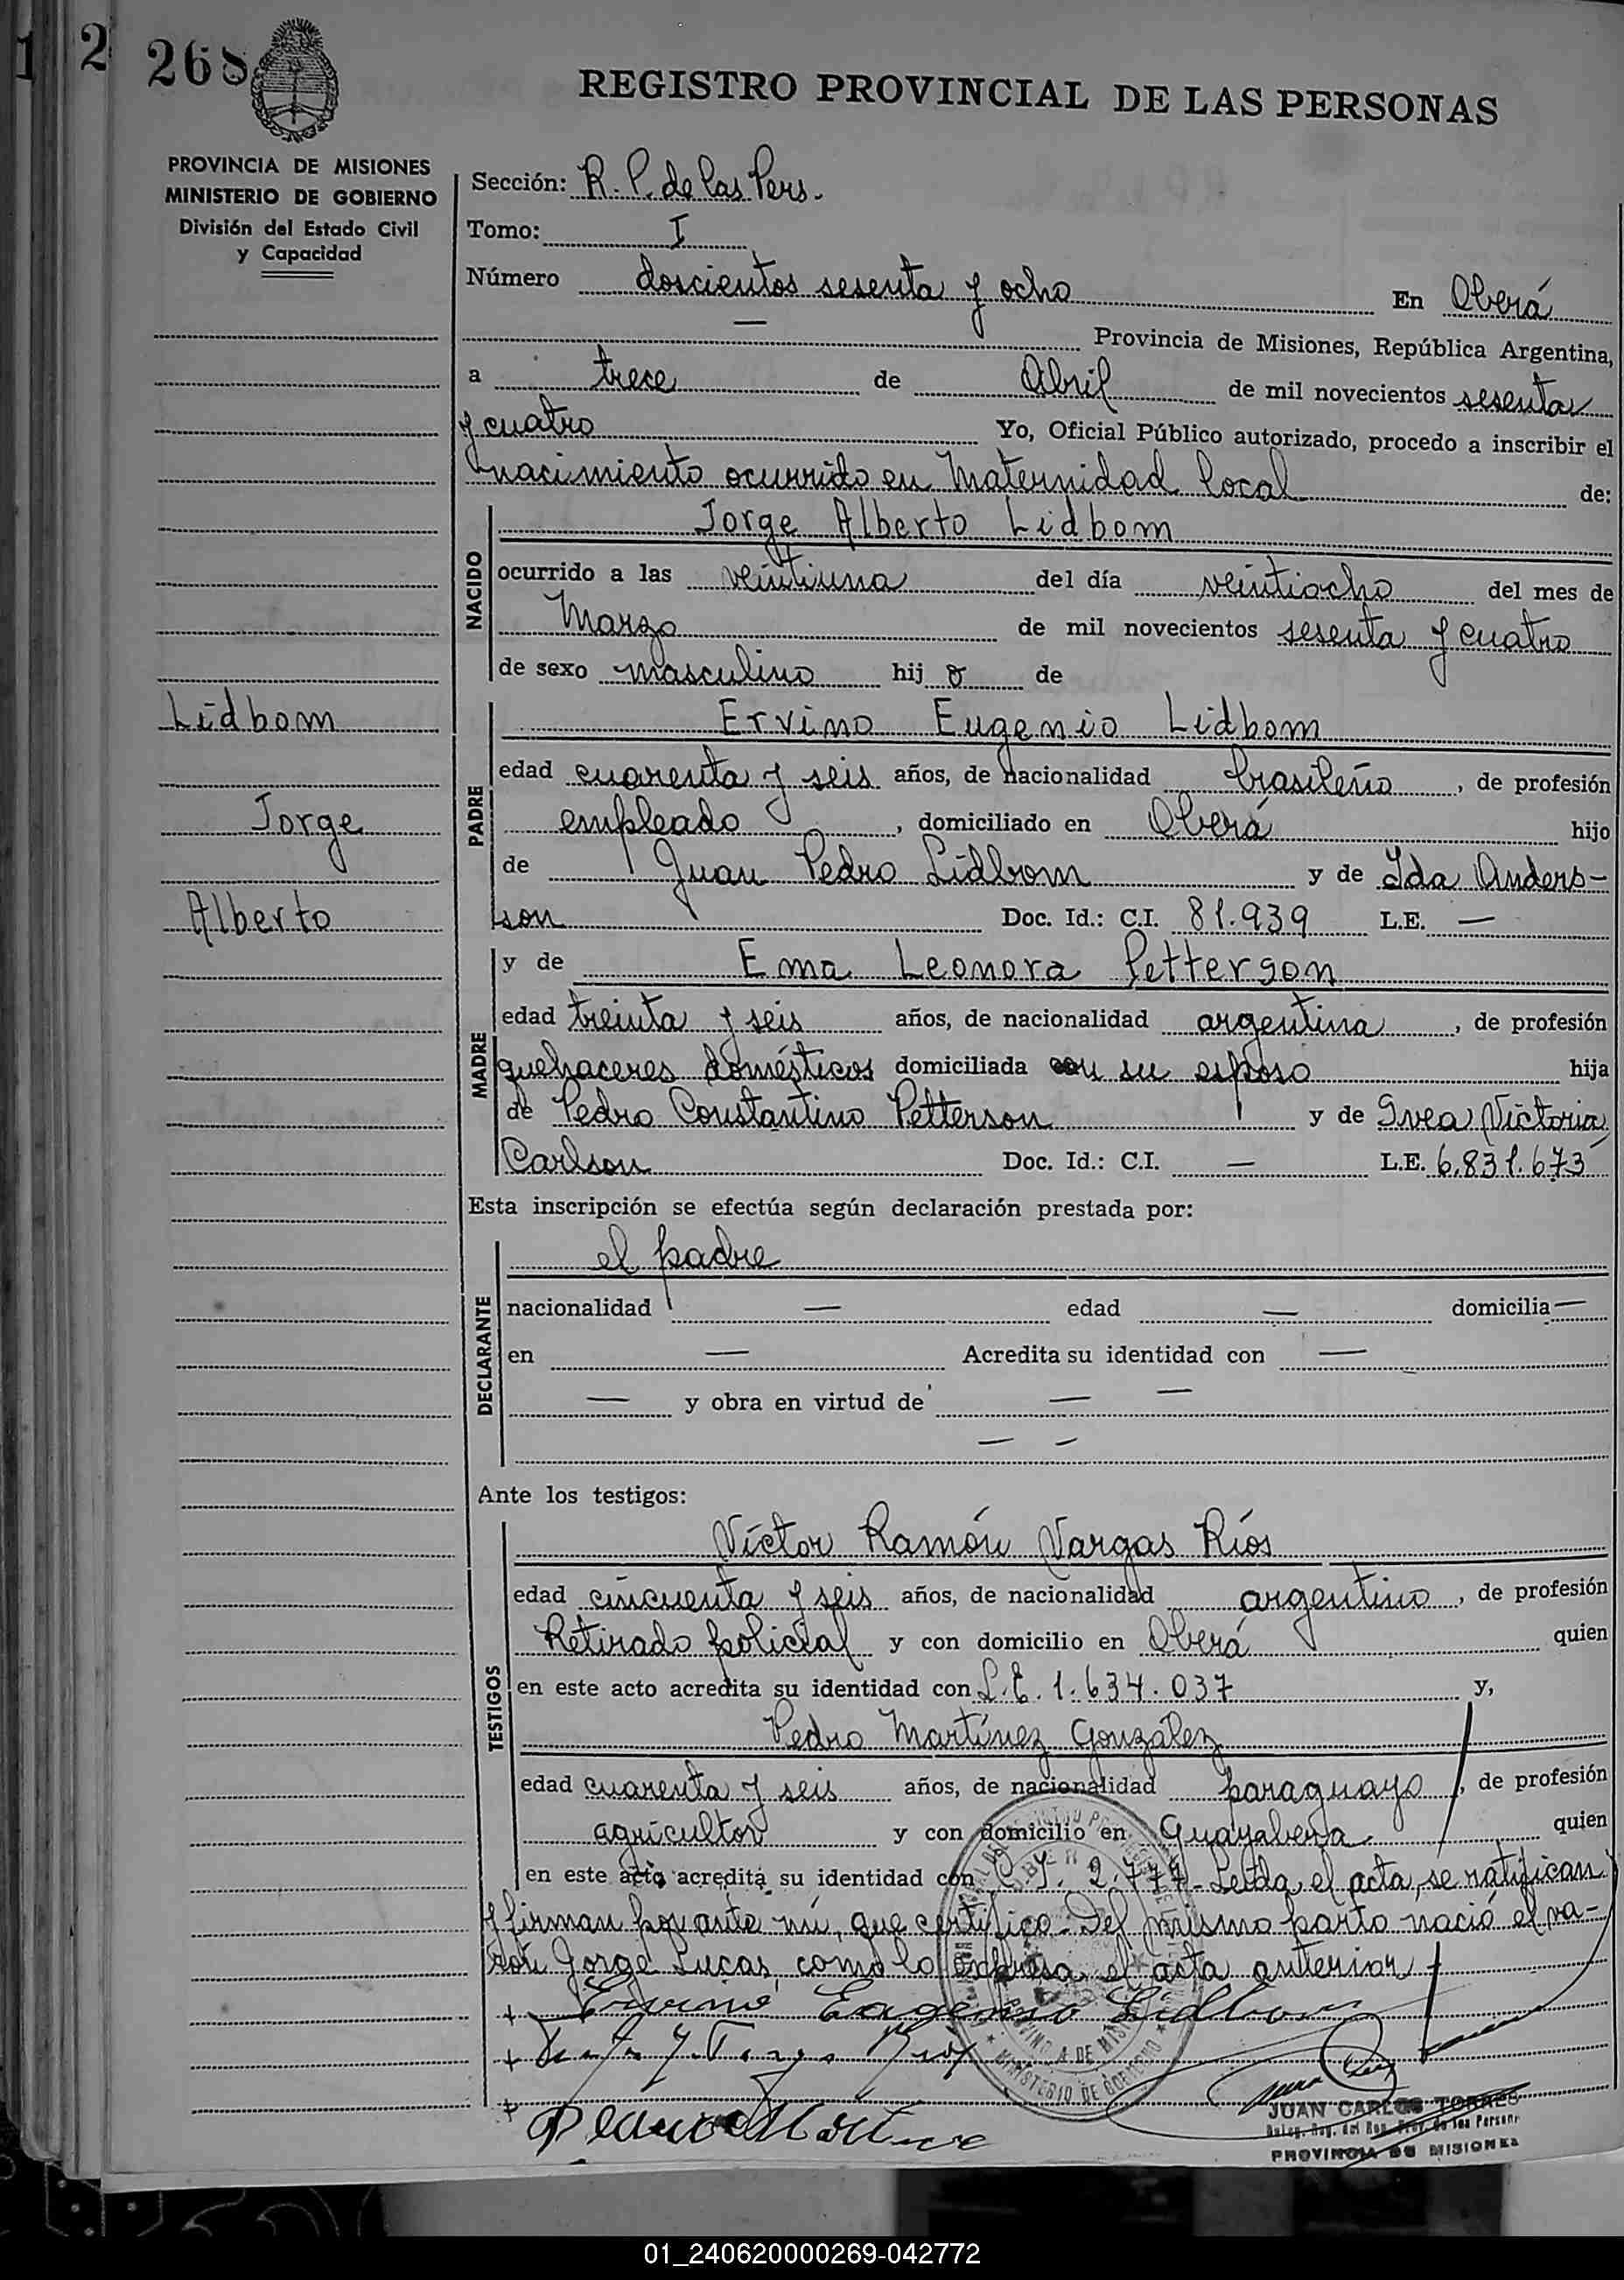 1 2 268
REGISTRO PROVINCIAL DE LAS PERSONAS
PROVINCIA DE MISIONES
MINISTERIO DE GOBIERNO
División del Estado Civil
y Capacidad
Sección: R. P. de las Pers.
Tomo: I
Número doscientos sesenta y ocho En Oberá
— Provincia de Misiones, República Argentina,
a trece de Abril de mil novecientos sesenta
y cuatro Yo, Oficial Público autorizado, procedo a inscribir el
nacimiento ocurrido en Maternidad Local de:
NACIDO
Jorge Alberto Lidbom
ocurrido a las veintiuna del día veintiocho del mes de
Marzo de mil novecientos sesenta y cuatro
de sexo masculino hij o de
Lidbom
Jorge
Alberto
PADRE
Ervino Eugenio Lidbom
edad cuarenta y seis años, de nacionalidad brasileño, de profesión
empleado, domiciliado en Oberá hijo
de Juan Pedro Lidbom y de Ida Anders-
son Doc. Id.: C.I. 81.939 L.E. —
MADRE
y de Ema Leonora Petterson
edad treinta y seis años, de nacionalidad argentina, de profesión
quehaceres domésticos domiciliada con su esposo hija
de Pedro Constantino Petterson y de Svea Victoria
Carlson Doc. Id.: C.I. — L.E. 6.831.673
Esta inscripción se efectúa según declaración prestada por:
DECLARANTE
el padre
nacionalidad — edad — domicilia —
en — Acredita su identidad con —
— y obra en virtud de — —
— —
Ante los testigos:
TESTIGOS
Víctor Ramón Vargas Ríos
edad cincuenta y seis años, de nacionalidad argentino, de profesión
Retirado policial y con domicilio en Oberá quien
en este acto acredita su identidad con L.E. 1.634.037 y,
Pedro Martínez González
edad cuarenta y seis años, de nacionalidad paraguayo, de profesión
agricultor y con domicilio en Guayabera quien
en este acto acredita su identidad con C.I. 2.777.- Leída el acta, se ratifican
y firman por ante mí, que certifico.- Del mismo parto nació el va-
rón Jorge Lucas, como lo expresa el acta anterior
+ Ervino Eugenio Lidbom
+
+ Pedro Martinez
JUAN CARLOS TORRES
Deleg. Reg. del Reg. Prov. de las Person.
PROVINCIA DE MISIONES
MINISTERIO DE GOBIERNO
01_240620000269-042772